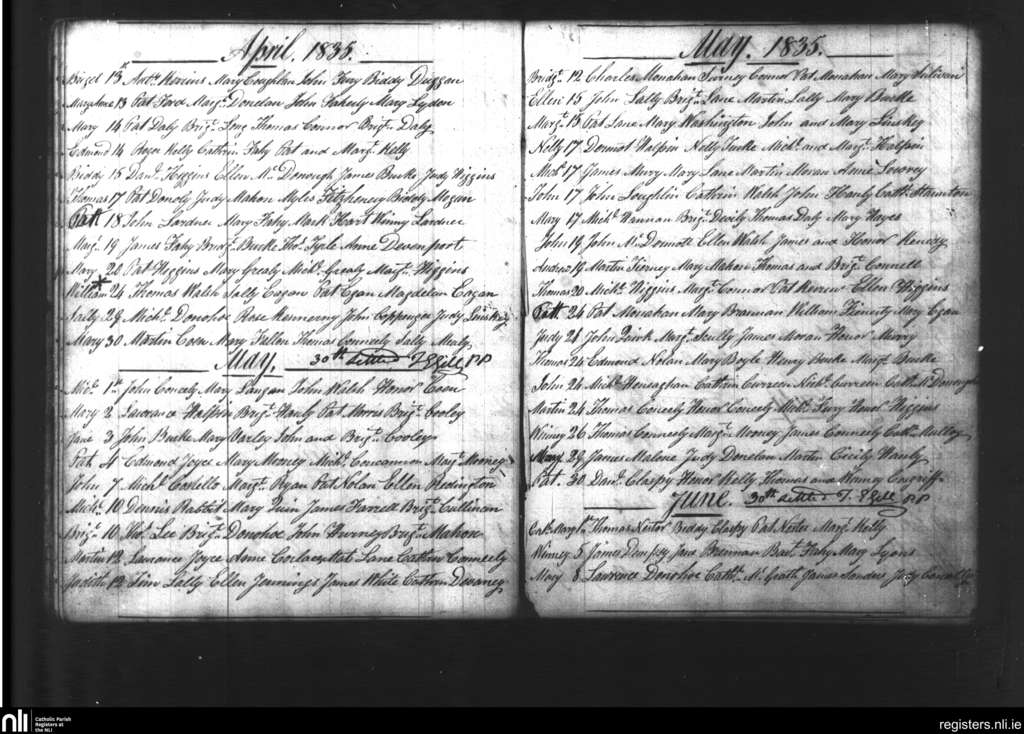 April. 1835.
Briget 13th Anty. Mary Coughlan John Biddy Duggan
Mary Anne 13 Pat Ford Margt. Donelan John Faherly Mary Lydon
Mary 14 Pat Daly Brigt. Long Thomas Connor Brigt. Daly
Edmond 14 Roger Kelly Cathrin Fahy Pat and Margt. Kelly
Biddy 15 Danl. Higgins Ellen Mc. Donough James Burke Judy Higgins
Thomas 17 Pat Judy Mahon Myles Biddy Mogan
Patt 18 John Lardner Mary Fahy Mark Hart Winny Lardner
Margt. 19 James Fahy Bridgt. Burke Thos. Anne Devenport
Mary 20 Pat Higgins Mary Grealy Michl. Grealy Margt. Higgins
William 24 Thomas Walsh Sally Eagan Pat Egan Magdelen Eagan
29 Michl. Donohoe Rose John Coppenger Judy
Mary 30 Martin Coen Mary Fallon Thomas Conneely Sally Mealy
May, 30th settled PP
Michl. 1st John Conely Mary Langan John Walsh Honor Coen
Mary 2 Lawrance Halpin Brigt. Hanly Pat Morris Brigt. Cooley
Jane 3 John Burke Mary Varley John and Brigt. Cooley
Pat 4 Edmond Joyce Mary Mooney Michl. Concannon Margt. Mooney
John 7 Michl. Costello Margt. Ryan Pat Nolan Ellen Redington
Michl. 10 Dennis Rabbit Mary Quin James Farrell Brigt. Cullinan
Brigt. 10 Thos. Lee Brigt. Donohoe John Brigt. Mahon
Martin 12 Lawrance Joyce Anne Mat Lane Cathrin Conneely
Judith 12 Tim Lally Ellen Jennings James White Cathrin Devaney
May. 1835.
Bridgt. 12 Charles Monahan Connor Pat Monahan Mary Sulivan
Ellen 15 John Lally Brigt. Lane Martin Lally Mary Burke
Margt. 15 Pat Lane Mary Washington John and Mary Linskey
Nelly 17 Dermot Halpin Nelly Burke Michl. and Margt. Halpin
Michl. 17 James Murry Mary Lane Martin Moran Anne
John 17 John Loughlin Cathrin Walsh John Hanly Cathn. Staunton
Mary 17 Michl. Hannan Brigt. Devily Thomas Daly Mary Hayes
John 19 John Mc. Dermott Ellen Walsh James and Honor Kenedy
Andrew 19 Martin Tierney Mary Mahon Thomas and Brigt. Connell
Thomas 20 Michl. Higgins Margt. Connor Pat Ellen Higgins
Patt 24 Pat Monahan Mary Brannan William Mary Egan
Judy 21 John Margt. Scully James Moran Honor Murry
Thomas 25 Edmond Nolan Mary Boyle Henry Burke Margt. Burke
John 26 Michl. Heneaghan Cathrin Curreen Michl. Curreen Cathn. Mc Donough
Martin 24 Thomas Coneely Honor Coneely Michl. Honor Higgins
Winney 26 Thomas Conneely Margt. Mooney James Conneely Cathn. Mulloy
Mary 29 James Malone Judy Donelan Martin Cicily Hanly
Pat 30 Danl. Claspy Honor Kelly Thomas and Winney
June. 30th settled PP
1st Thomas Nestor Biddy Claspy Pat Nestor Margt. Kelly
Winney 5 James Dempsy Jane Brennan Bart. Fahy Mary Lyons
Mary 8 Lawrence Donohoe Cathn. Mc. Grath James Sanders Judy
nli
Catholic Parish
Registers at
the NLI
registers.nli.ie